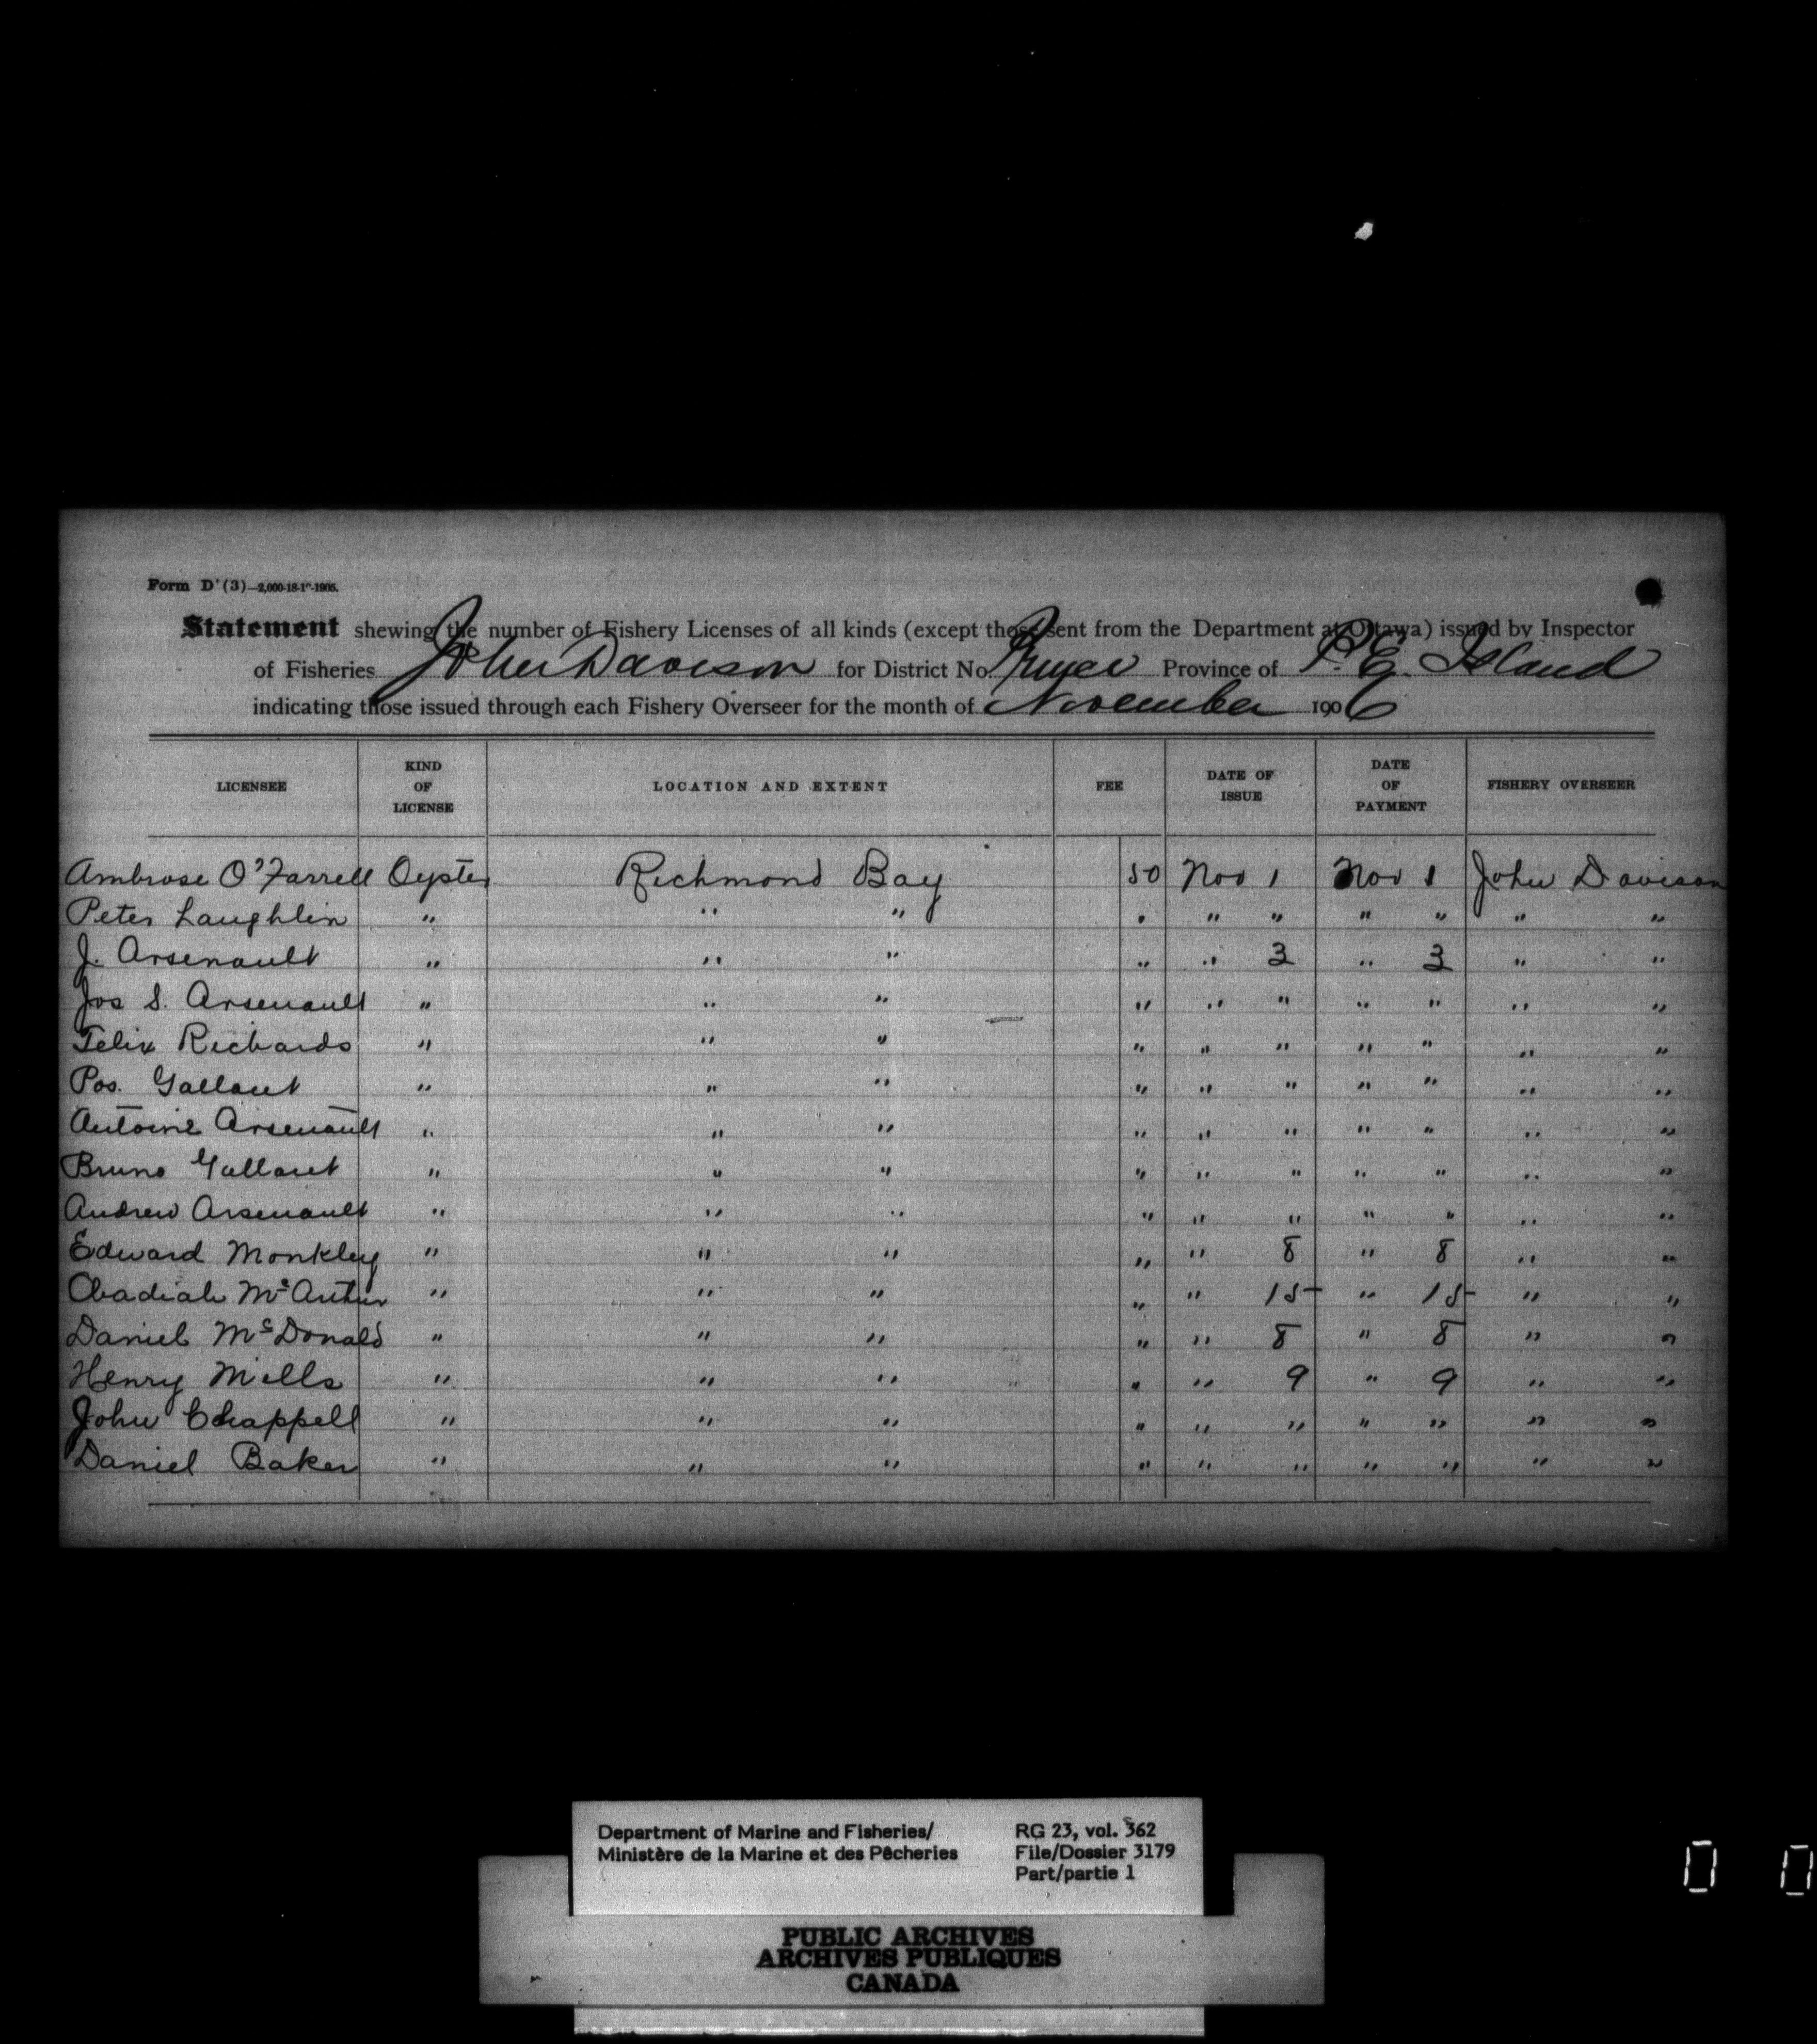 Form D'(3)—2,000-18-1"-1905.
Statement shewing the number of Fishery Licenses of all kinds (except those sent from the Department at Ottawa) issued by Inspector
of Fisheries John Davison for District No. Prince Province of P. E. Island
indicating those issued through each Fishery Overseer for the month of November 1906
LICENSEE KIND OF LICENSE LOCATION AND EXTENT FEE DATE OF ISSUE DATE OF PAYMENT FISHERY OVERSEER
Ambrose O'Farrell Oyster Richmond Bay 50 Nov 1 Nov 1 John Davison
Peter Laughlin " " " " " " " " " "
J. Arsenault " " " " " 3 " 3 " "
Jos S. Arsenault " " " " " " " " " "
Felix Richards " " " " " " " " " "
Pos. Gallant " " " " " " " " " "
Antoine Arsenault " " " " " " " " " "
Bruno Gallant " " " " " " " " " "
Andrew Arsenault " " " " " " " " " "
Edward Monkley " " " " " 8 " 8 " "
Obadiah Mc Arthur " " " " " 15 " 15 " "
Daniel McDonald " " " " " 8 " 8 " "
Henry Mills " " " " " 9 " 9 " "
John Chappell " " " " " " " " " "
Daniel Baker " " " " " " " " " "
Department of Marine and Fisheries/ RG 23, vol. 362
Ministère de la Marine et des Pêcheries File/Dossier 3179
Part/partie 1
PUBLIC ARCHIVES
ARCHIVES PUBLIQUES
CANADA
0 0